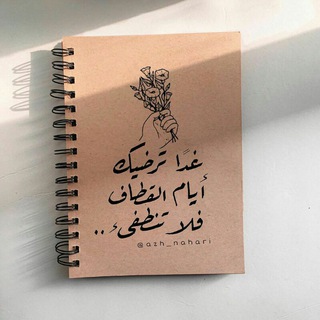 غدًا ترضيك
أيام القطاف
فلا تنطفىء ..
@azh_nahari